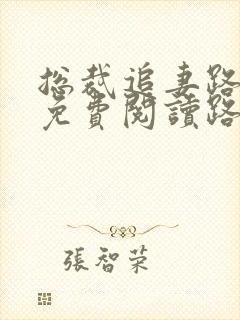 总裁追妻路
免費閱讀路
張智荣